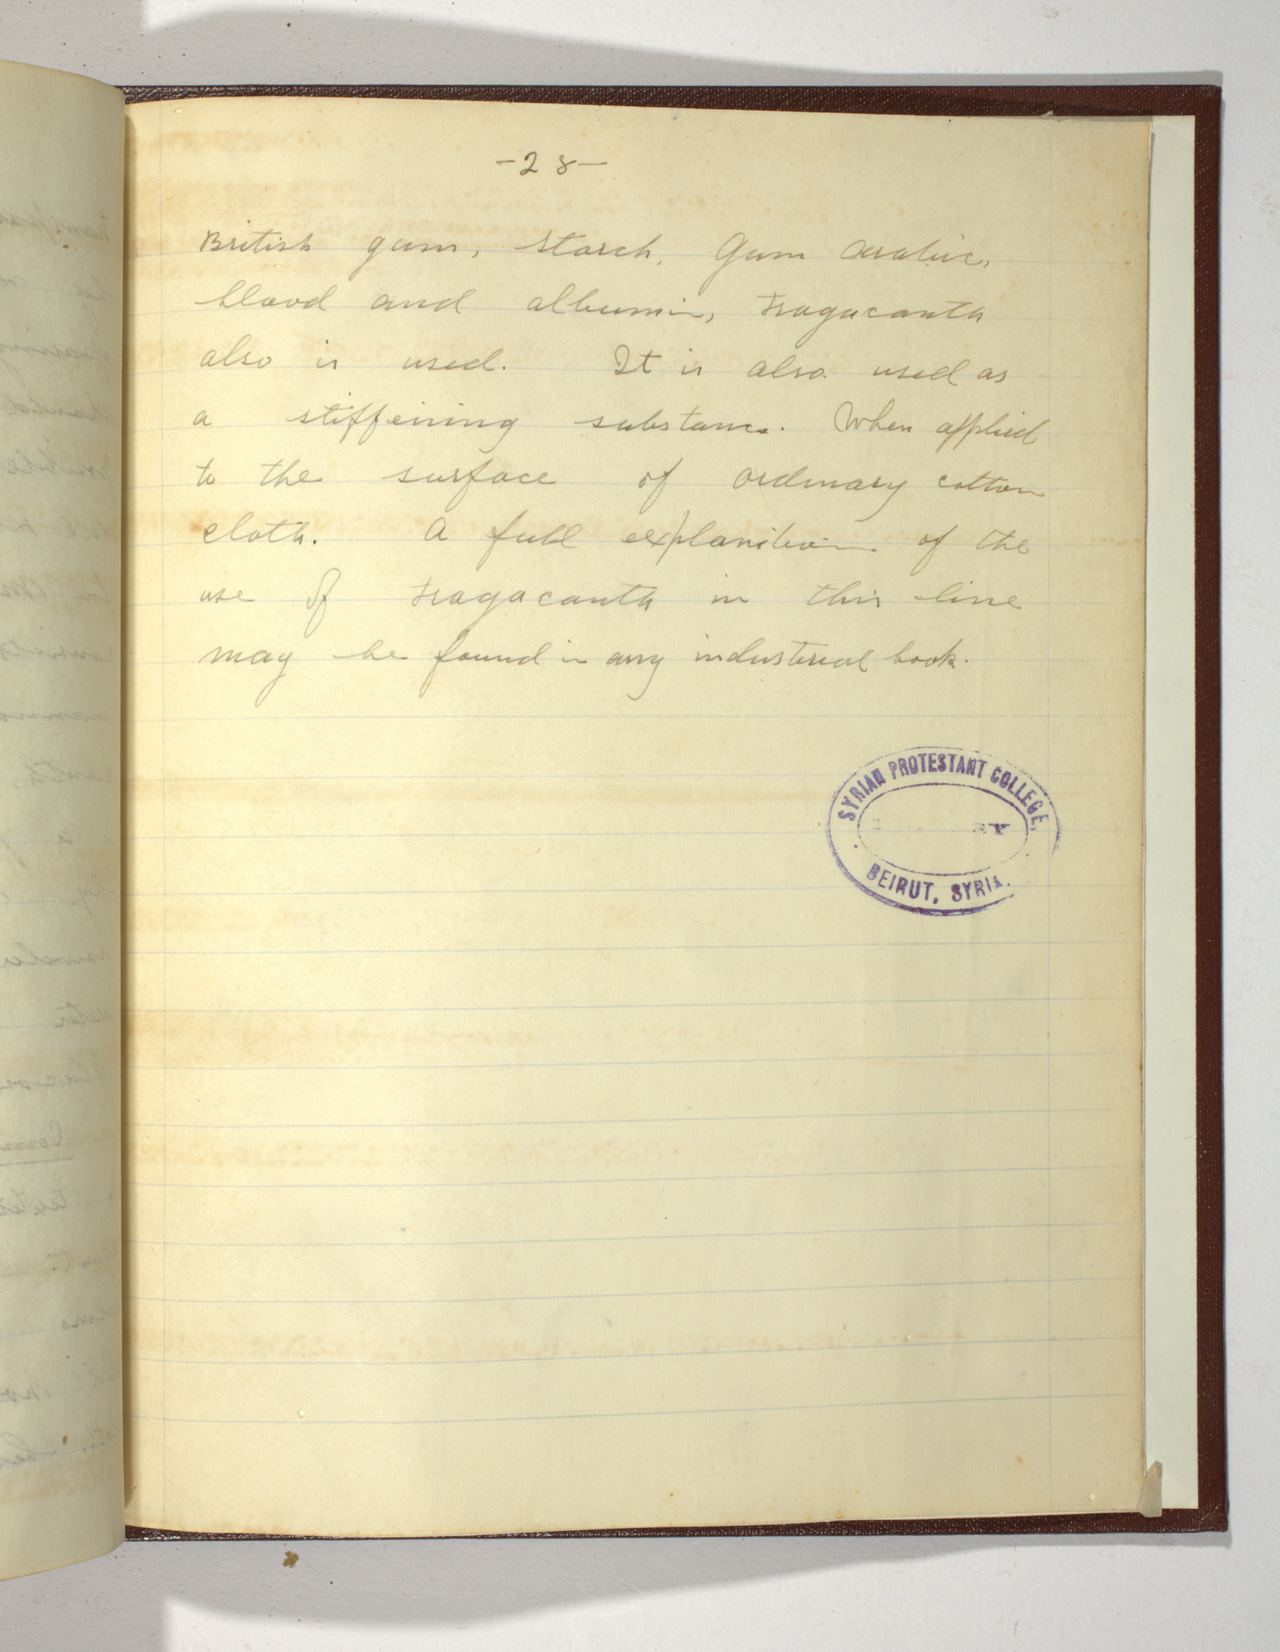 -28-
British gum, starch, Gum arabic,
blood and albumin, tragacanth
also is used. It is also used as
a stiffening substance. When applied
to the surface of ordinary cotton
cloth. A full explanition of the
use of tragacanth in this line
may be found in any industrial book.
SYRIAN PROTESTANT COLLEGE,
BEIRUT, SYRIA.